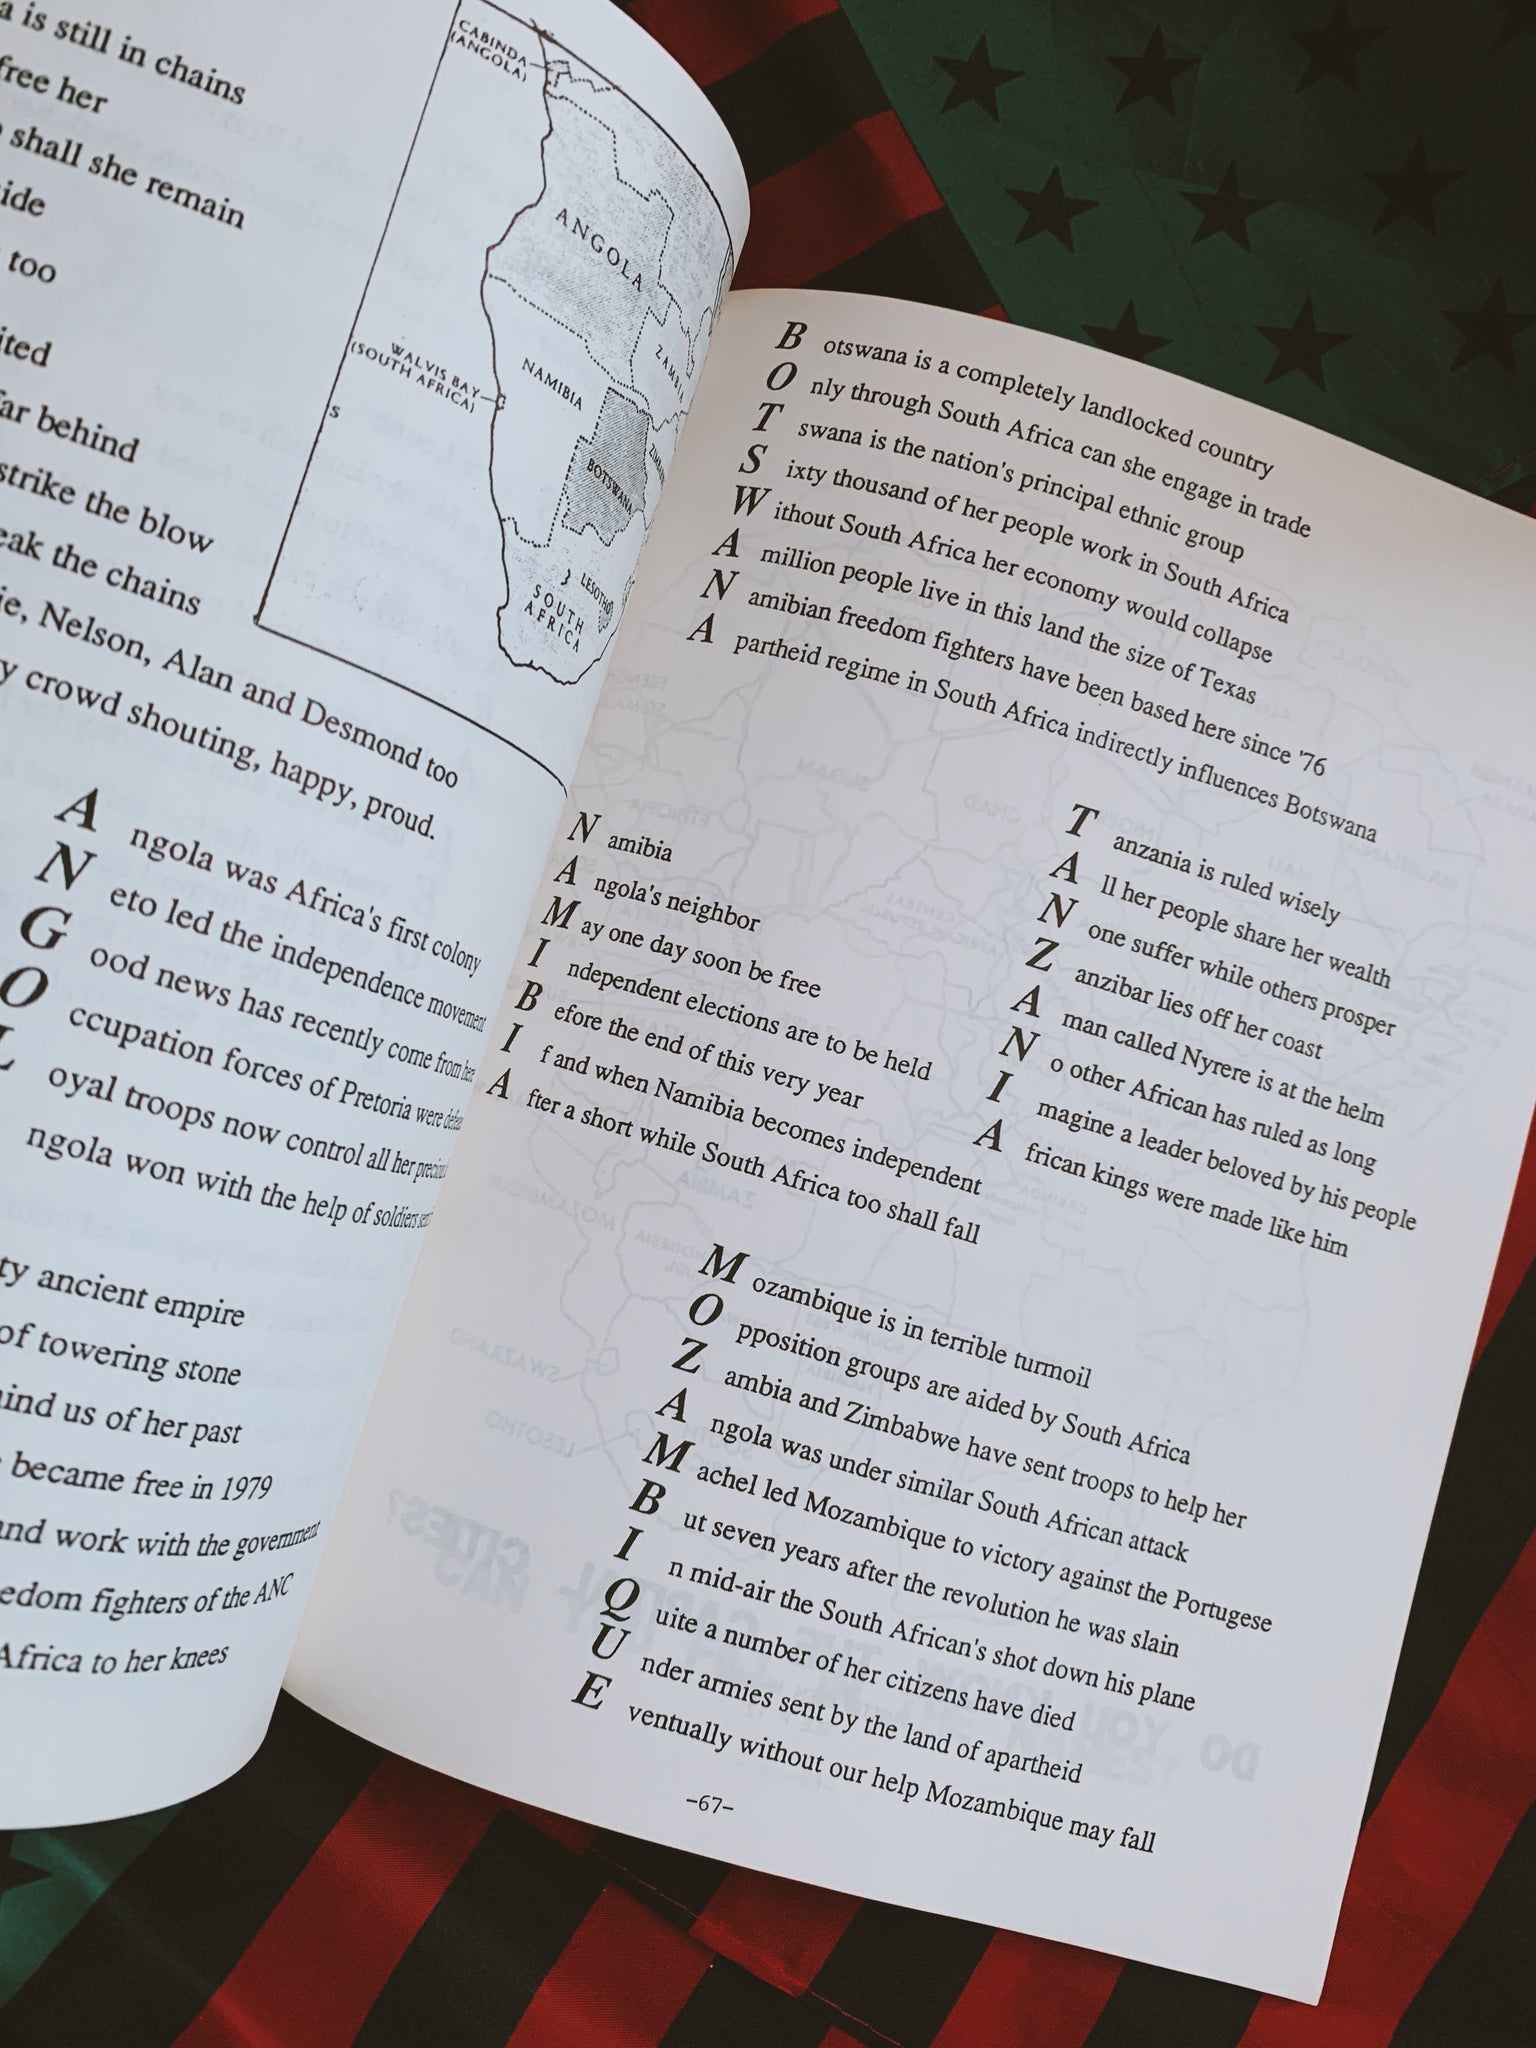 a is still in chains
free her
shall she remain
ide
too
ited
far behind
strike the blow
eak the chains
ie, Nelson, Alan and Desmond too
y crowd shouting, happy, proud.
CABINDA
(ANGOLA)
ANGOLA
ZAMBIA
NAMIBIA
WALVIS BAY
(SOUTH AFRICA)
S
BOTSWANA
LESOTHO
SOUTH
AFRICA
Angola was Africa's first colony
Neto led the independence movement
Good news has recently come from her
Occupation forces of Pretoria were
Loyal troops now control all her
ngola won with the help of soldiers
ty ancient empire
of towering stone
ind us of her past
became free in 1979
and work with the government
edom fighters of the ANC
Africa to her knees
Botswana is a completely landlocked country
Only through South Africa can she engage in trade
Tswana is the nation's principal ethnic group
Sixty thousand of her people work in South Africa
Without South Africa her economy would collapse
A million people live in this land the size of Texas
Namibian freedom fighters have been based here since '76
Apartheid regime in South Africa indirectly influences Botswana
Namibia
Angola's neighbor
May one day soon be free
Independent elections are to be held
Before the end of this very year
If and when Namibia becomes independent
After a short while South Africa too shall fall
Tanzania is ruled wisely
All her people share her wealth
None suffer while others prosper
Zanzibar lies off her coast
A man called Nyrere is at the helm
No other African has ruled as long
Imagine a leader beloved by his people
African kings were made like him
Mozambique is in terrible turmoil
Opposition groups are aided by South Africa
Zambia and Zimbabwe have sent troops to help her
Angola was under similar South African attack
Machel led Mozambique to victory against the Portugese
But seven years after the revolution he was slain
In mid-air the South African's shot down his plane
Quite a number of her citizens have died
Under armies sent by the land of apartheid
Eventually without our help Mozambique may fall
-67-